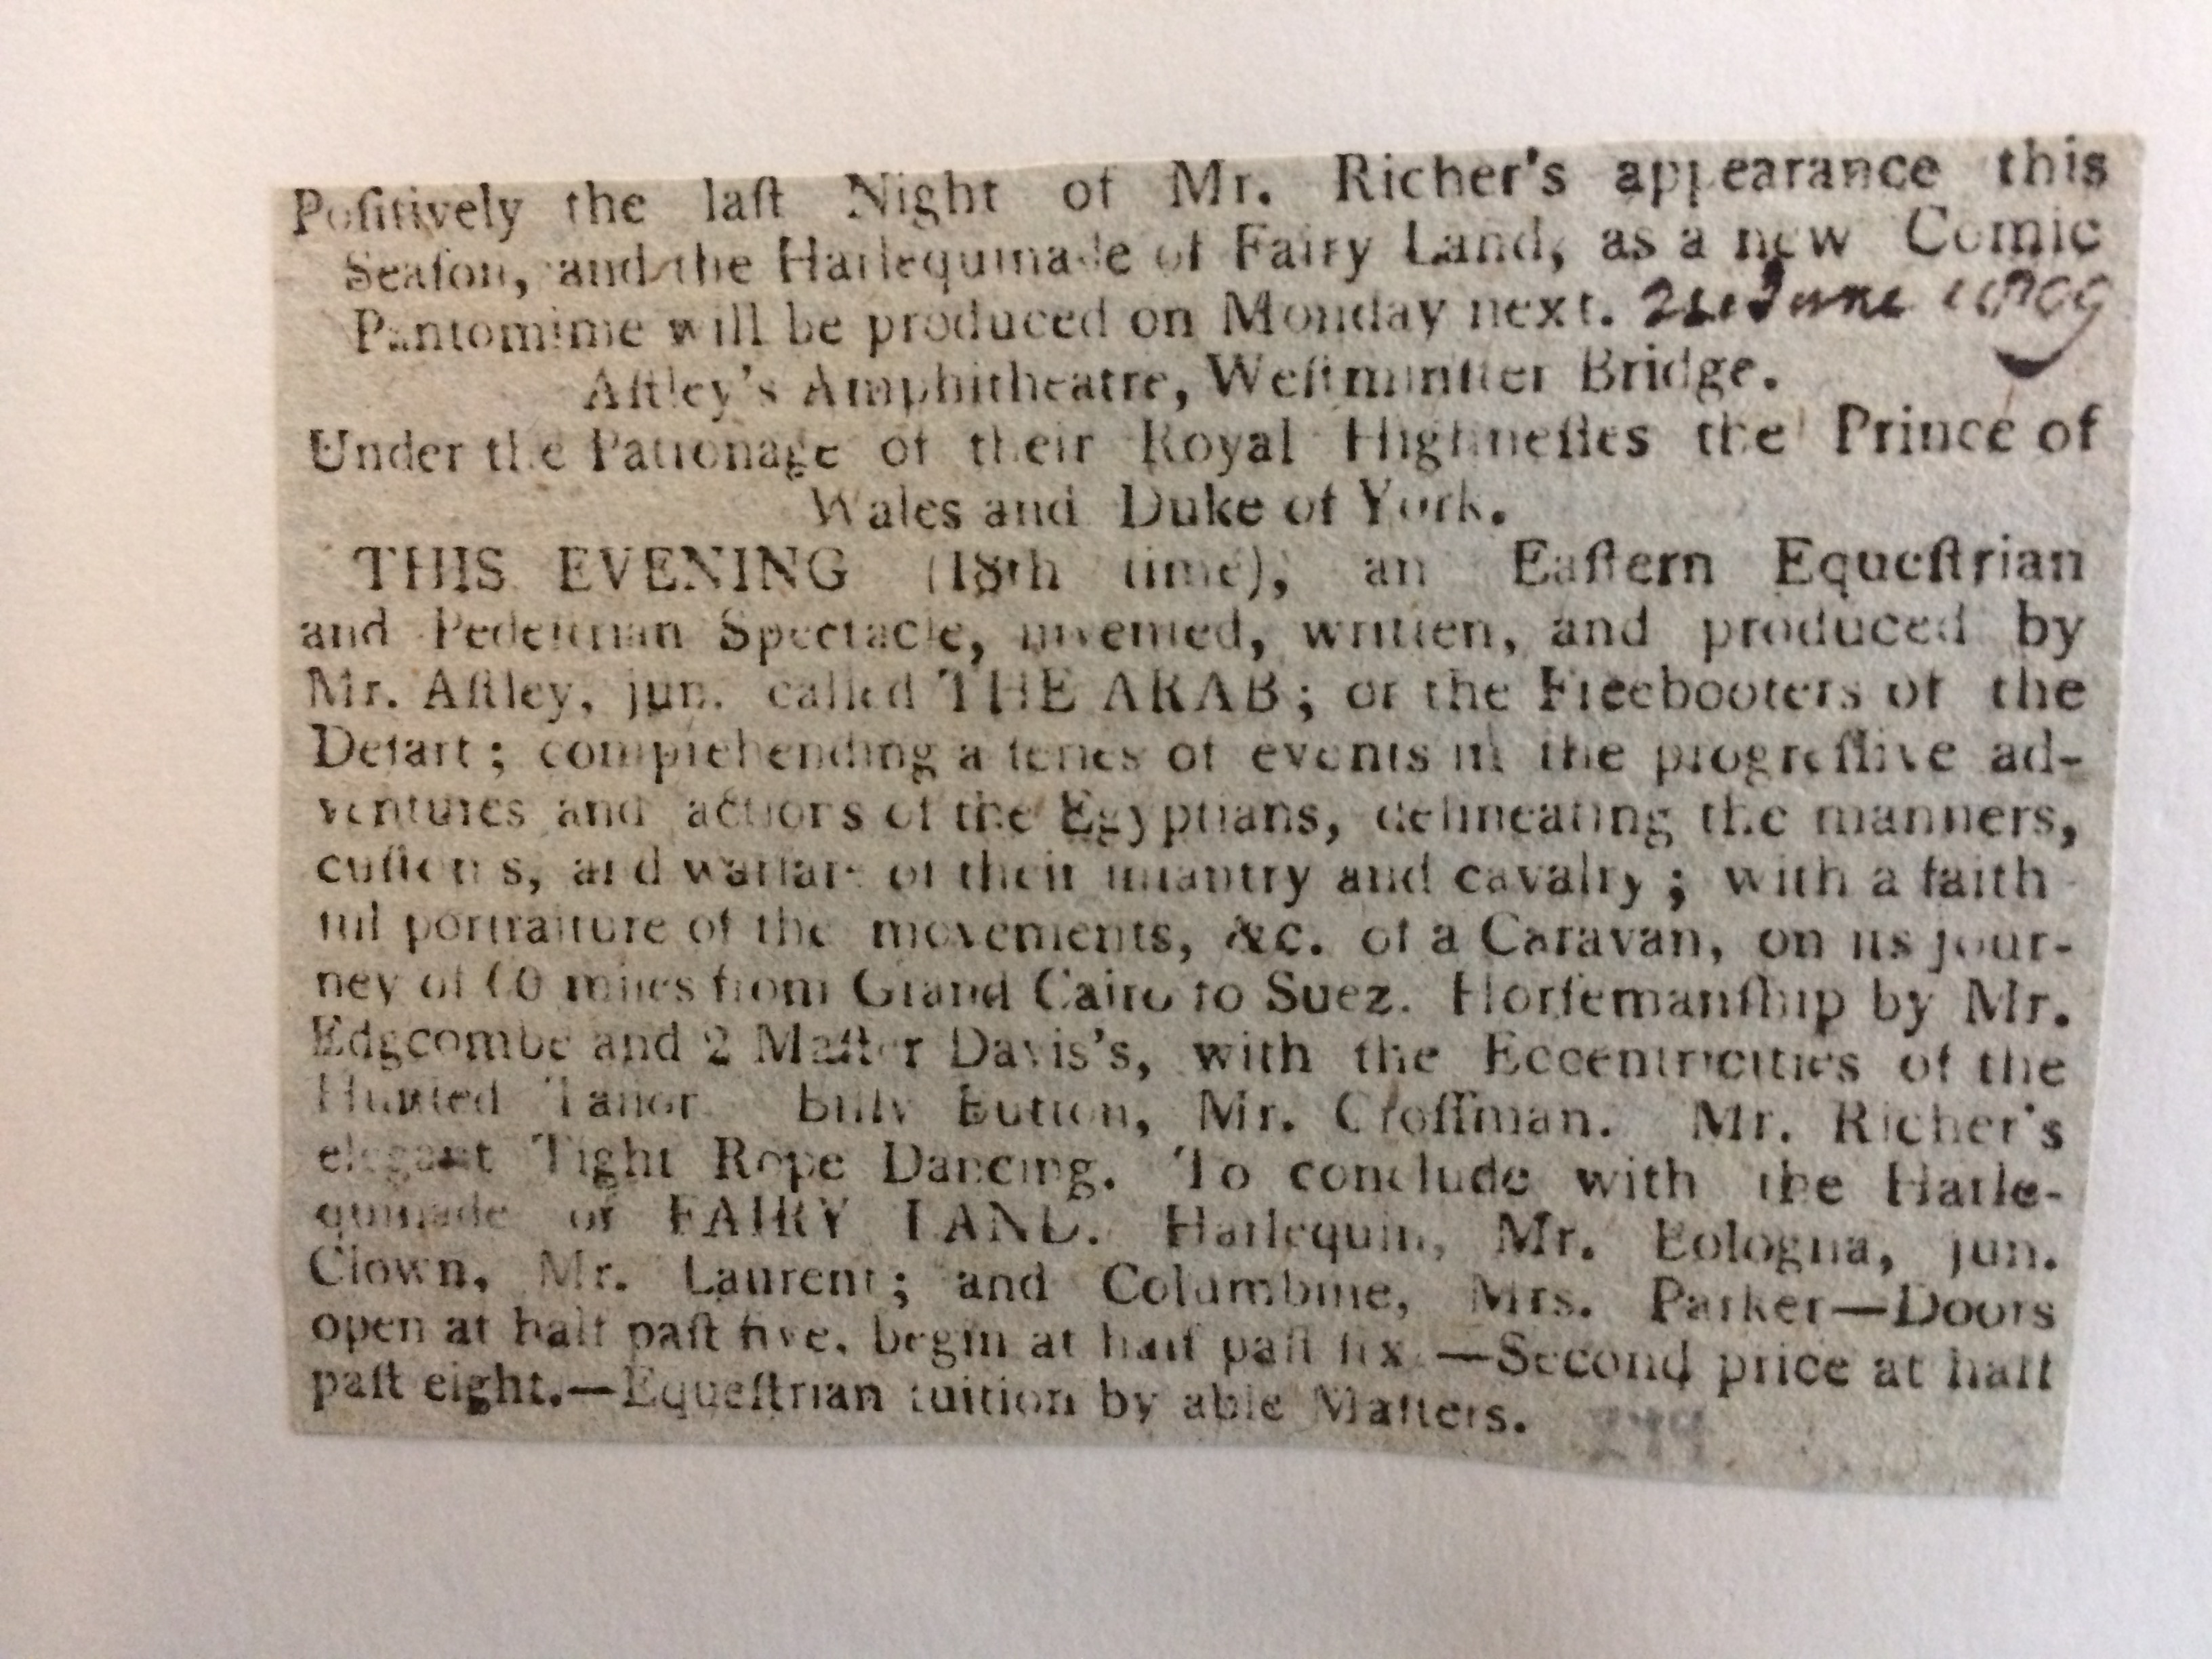 Poſitively the laſt Night of Mr. Richer's appearance this
Seaſon, and the Harlequinade of Fairy Land, as a new Comic
Pantomime will be produced on Monday next. June
Aſtley's Amphitheatre, Weſtminſter Bridge.
Under the Patronage of their Royal Highneſſes the Prince of
Wales and Duke of York.
THIS EVENING (18th time), an Eaſtern Equeſtrian
and Pedeſtrian Spectacle, invented, written, and produced by
Mr. Aſtley, jun. called THE ARAB; or the Freebooters of the
Deſart; comprehending a ſeries of events in the progreſſive ad-
ventures and actions of the Egyptians, delineating the manners,
cuſtoms, and warfare of their infantry and cavalry; with a faith
ful portraiture of the movements, &c. of a Caravan, on its jour-
ney of 60 miles from Grand Cairo to Suez. Horſemanſhip by Mr.
Edgcombe and 2 Maſter Davis's, with the Eccentricities of the
Hunted Tailor Billy Button, Mr. Croſſman. Mr. Richer's
elegant Tight Rope Dancing. To conclude with the Harle-
quinade of FAIRY LAND. Harlequin, Mr. Bologna, jun.
Clown, Mr. Laurent; and Columbine, Mrs. Parker—Doors
open at half paſt five, begin at half paſt ſix.—Second price at half
paſt eight.—Equeſtrian tuition by able Maſters.